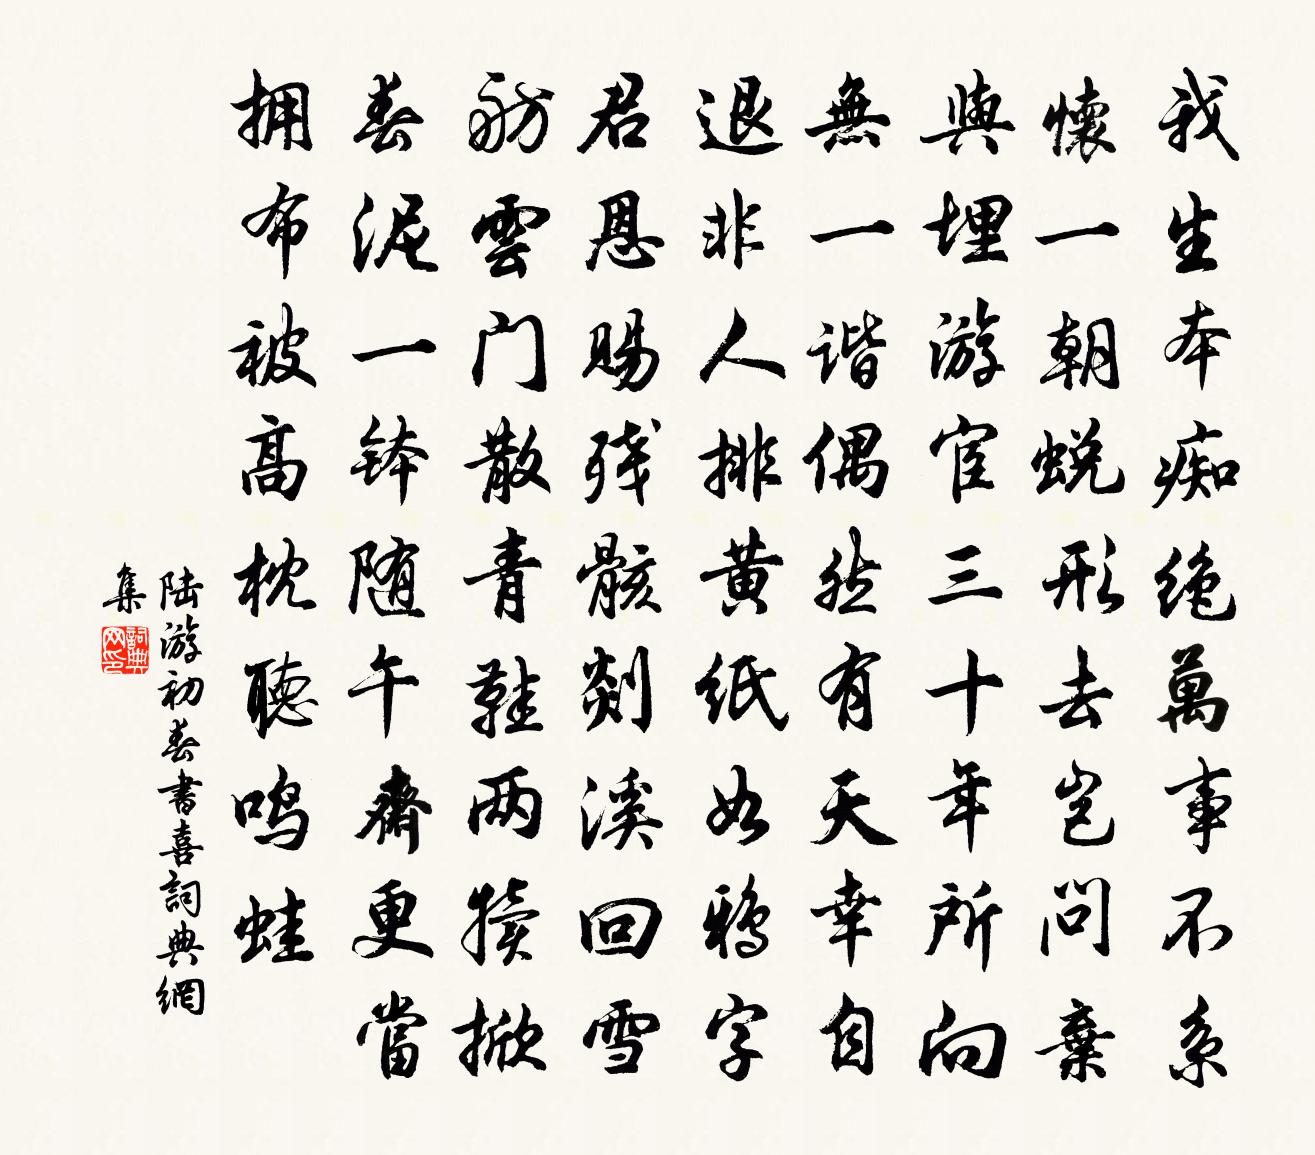 我生本痴绝萬事不系
懷一朝蜕形去岂问棄
與埋游宦三十年所向
無一谐偶然有天幸自
退非人排黄纸如鸦字
君恩赐残骸剡溪回雪
舫雲门散青鞋两犊掀
春泥一钵随午齋更當
拥布被高枕聽鸣蛙
陆游初春書喜詞典網
集
詞典
网印